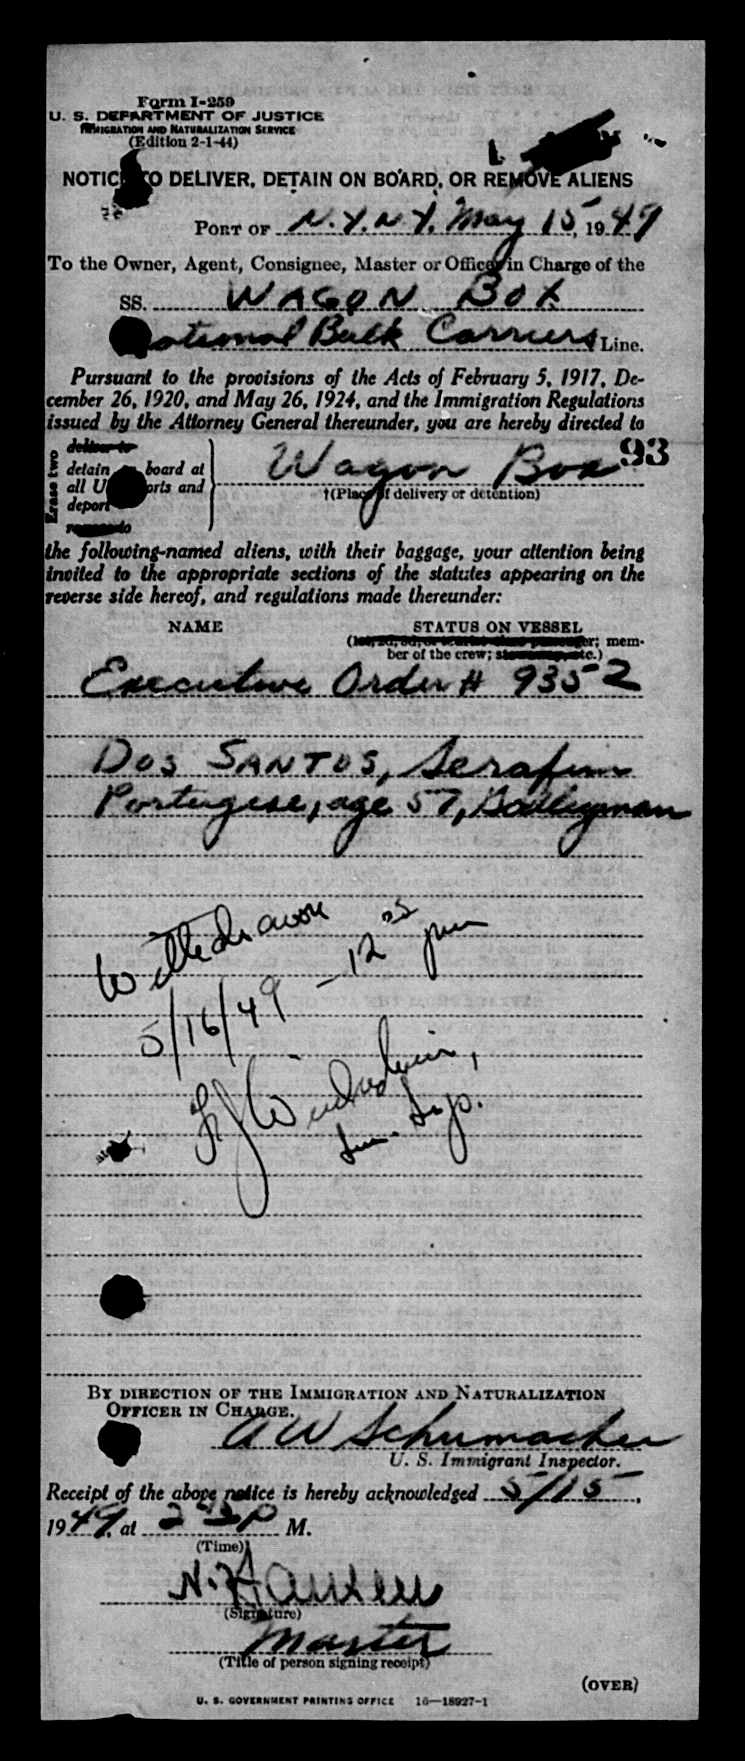 Form I-259
U. S. DEPARTMENT OF JUSTICE
IMMIGRATION AND NATURALIZATION SERVICE
(Edition 2-1-44)
NOTICE TO DELIVER, DETAIN ON BOARD, OR REMOVE ALIENS
PORT OF N.Y. N.Y. May 15, 1949
To the Owner, Agent, Consignee, Master or Officer in Charge of the
SS. WAGON BOX
National Bulk Carriers Line.
Pursuant to the provisions of the Acts of February 5, 1917, De-
cember 26, 1920, and May 26, 1924, and the Immigration Regulations
issued by the Attorney General thereunder, you are hereby directed to
Erase two
deliver to
detain on board at
all U. S. ports and
deport
remove to
Wagon Box 93
†(Place of delivery or detention)
the following-named aliens, with their baggage, your attention being
invited to the appropriate sections of the statutes appearing on the
reverse side hereof, and regulations made thereunder:
NAME STATUS ON VESSEL
(1st, 2d, 3d, or tourist class passenger; mem-
ber of the crew; stowaway, etc.)
Executive Order # 9352
DOS SANTOS, Serafim
Portugese, age 57, Galleyman
Withdrawn
5/16/49 - 12 05 pm
Imm. Insp.
BY DIRECTION OF THE IMMIGRATION AND NATURALIZATION
OFFICER IN CHARGE.
A W Schumacher
U. S. Immigrant Inspector.
Receipt of the above notice is hereby acknowledged 5/15,
1949, at 2 30 P M.
(Time)
(Signature)
Master
(Title of person signing receipt)
(OVER)
U. S. GOVERNMENT PRINTING OFFICE 16—18927-1